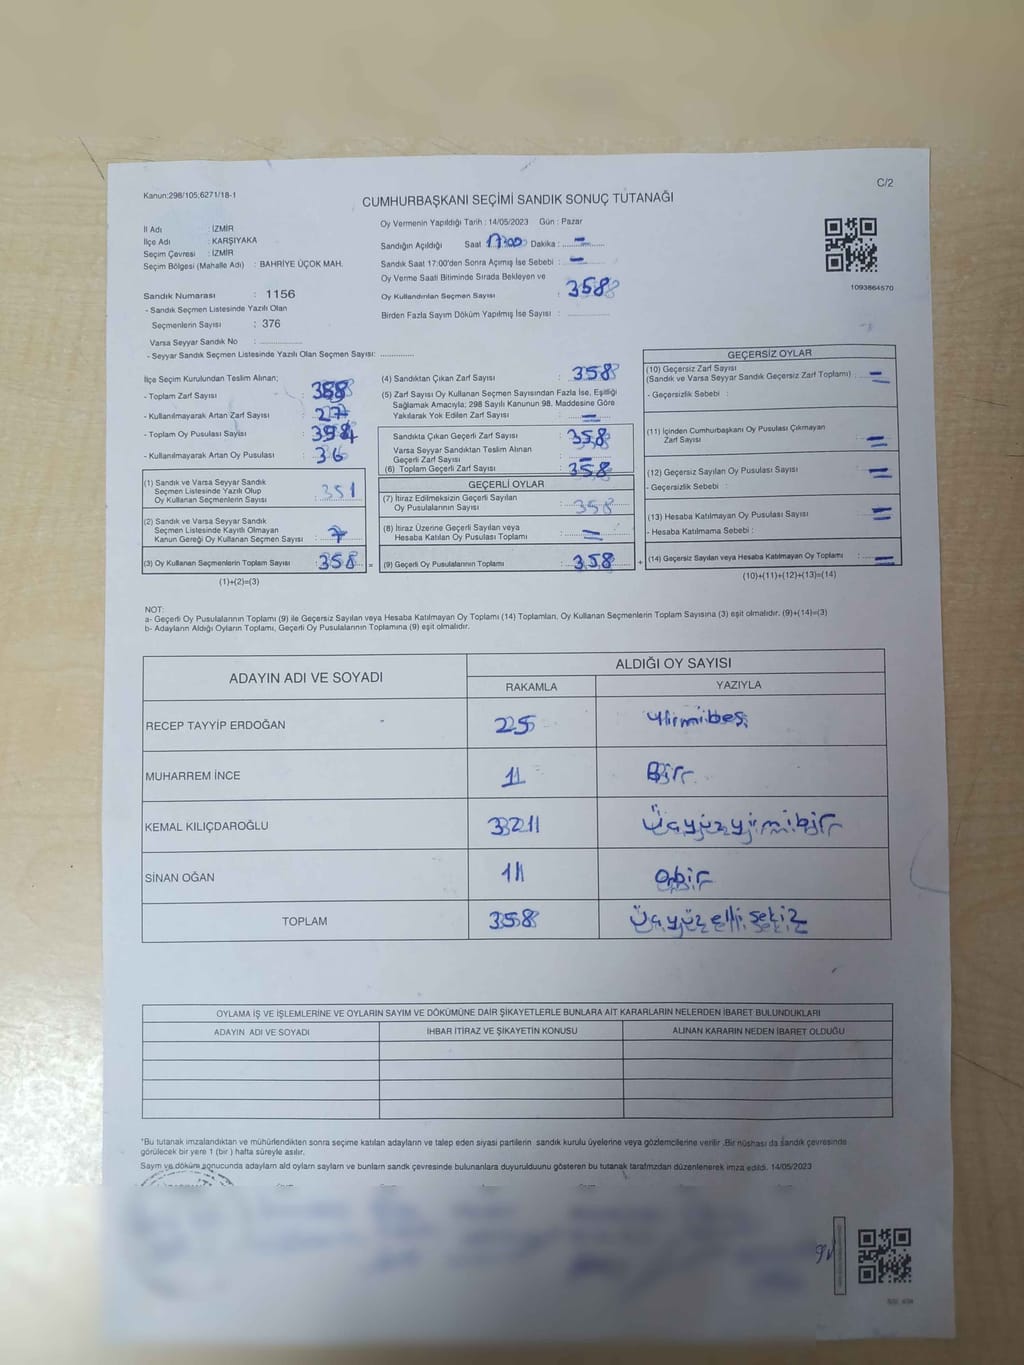 Kanun:298/105;6271/18-1
C/2
CUMHURBAŞKANI SEÇİMİ SANDIK SONUÇ TUTANAĞI
İl Adı : İZMİR
İlçe Adı : KARŞIYAKA
Seçim Çevresi : İZMİR
Seçim Bölgesi (Mahalle Adı) : BAHRİYE ÜÇOK MAH.
Sandık Numarası : 1156
- Sandık Seçmen Listesinde Yazılı Olan
Seçmenlerin Sayısı : 376
Varsa Seyyar Sandık No : ..............
- Seyyar Sandık Seçmen Listesinde Yazılı Olan Seçmen Sayısı: ..............
Oy Vermenin Yapıldığı Tarih : 14/05/2023 Gün : Pazar
Sandığın Açıldığı Saat 17:00 Dakika : –
Sandık Saat 17:00'den Sonra Açımış İse Sebebi : –
Oy Verme Saati Bitiminde Sırada Bekleyen ve
Oy Kullandırılan Seçmen Sayısı : 358
Birden Fazla Sayım Döküm Yapılmış İse Sayısı : ..............
1093864570
İlçe Seçim Kurulundan Teslim Alınan;
- Toplam Zarf Sayısı :
- Kullanılmayarak Artan Zarf Sayısı : 27
- Toplam Oy Pusulası Sayısı : 394
- Kullanılmayarak Artan Oy Pusulası : 36
(1) Sandık ve Varsa Seyyar Sandık
Seçmen Listesinde Yazılı Olup
Oy Kullanan Seçmenlerin Sayısı : 351
(2) Sandık ve Varsa Seyyar Sandık
Seçmen Listesinde Kayıtlı Olmayan
Kanun Gereği Oy Kullanan Seçmen Sayısı : 7
(3) Oy Kullanan Seçmenlerin Toplam Sayısı : 358 =
(1)+(2)=(3)
(4) Sandıktan Çıkan Zarf Sayısı : 358
(5) Zarf Sayısı Oy Kullanan Seçmen Sayısından Fazla İse, Eşitliği
Sağlamak Amacıyla; 298 Sayılı Kanunun 98. Maddesine Göre
Yakılarak Yok Edilen Zarf Sayısı : =
Sandıkta Çıkan Geçerli Zarf Sayısı : 358
Varsa Seyyar Sandıktan Teslim Alınan
Geçerli Zarf Sayısı :
(6) Toplam Geçerli Zarf Sayısı : 358
GEÇERLİ OYLAR
(7) İtiraz Edilmeksizin Geçerli Sayılan
Oy Pusulalarının Sayısı : 358
(8) İtiraz Üzerine Geçerli Sayılan veya
Hesaba Katılan Oy Pusulası Toplamı : =
(9) Geçerli Oy Pusulalarının Toplamı : 358 +
GEÇERSİZ OYLAR
(10) Geçersiz Zarf Sayısı
(Sandık ve Varsa Seyyar Sandık Geçersiz Zarf Toplamı) : =
- Geçersizlik Sebebi :
(11) İçinden Cumhurbaşkanı Oy Pusulası Çıkmayan
Zarf Sayısı : =
(12) Geçersiz Sayılan Oy Pusulası Sayısı : =
- Geçersizlik Sebebi :
(13) Hesaba Katılmayan Oy Pusulası Sayısı : =
- Hesaba Katılmama Sebebi :
(14) Geçersiz Sayılan veya Hesaba Katılmayan Oy Toplamı : =
(10)+(11)+(12)+(13)=(14)
NOT:
a- Geçerli Oy Pusulalarının Toplamı (9) ile Geçersiz Sayılan veya Hesaba Katılmayan Oy Toplamı (14) Toplamları, Oy Kullanan Seçmenlerin Toplam Sayısına (3) eşit olmalıdır. (9)+(14)=(3)
b- Adayların Aldığı Oyların Toplamı, Geçerli Oy Pusulalarının Toplamına (9) eşit olmalıdır.
ADAYIN ADI VE SOYADI ALDIĞI OY SAYISI
RAKAMLA YAZIYLA
RECEP TAYYİP ERDOĞAN 25 Yirmibeş
MUHARREM İNCE 1 Bir
KEMAL KILIÇDAROĞLU 321 Üçyüzyirmibir
SİNAN OĞAN 11 Onbir
TOPLAM 358 Üçyüzellisekiz
OYLAMA İŞ VE İŞLEMLERİNE VE OYLARIN SAYIM VE DÖKÜMÜNE DAİR ŞİKAYETLERLE BUNLARA AİT KARARLARIN NELERDEN İBARET BULUNDUKLARI
ADAYIN ADI VE SOYADI İHBAR İTİRAZ VE ŞİKAYETİN KONUSU ALINAN KARARIN NEDEN İBARET OLDUĞU
*Bu tutanak imzalandıktan ve mühürlendikten sonra seçime katılan adayların ve talep eden siyasi partilerin sandık kurulu üyelerine veya gözlemcilerine verilir .Bir nüshası da sandık çevresinde
görülecek bir yere 1 (bir ) hafta süreyle asılır.
Sayım ve döküm sonucunda adayların aldığı oyların sayılarını ve bunların sandık çevresinde bulunanlara duyurulduğunu gösteren bu tutanak tarafımızdan düzenlenerek imza edildi. 14/05/2023